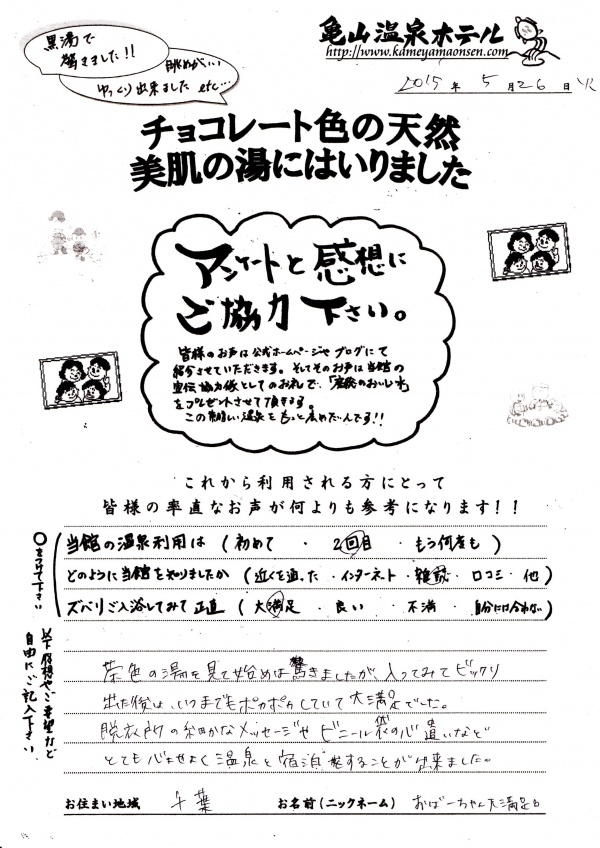 黒湯で
驚きました!!
眺めがいい
ゆっくり出来ました etc…
亀山温泉ホテル
http://www.kameyamaonsen.com/
2015年 5月26日
チョコレート色の天然
美肌の湯にはいりました
アンケートと感想に
ご協力下さい。
皆様のお声は公式ホームページやブログにて
紹介させていただきます。そしてそのお声は当館の
宣伝協力費としてのお礼で、「産院のおいしい水」
をプレゼントさせて頂きます。
この素晴しい温泉をもっと広めたいんです!!
これから利用される方にとって
皆様の率直なお声が何よりも参考になります!!
○をつけて下さい
当館の温泉利用は(初めて ・ 2回目 ・もう何度も)
どのように当館を知りましたか(近くを通った・インターネット・雑誌・口コミ・他)
ズバリご入浴してみて正直(大満足 ・ 良い ・ 不満 ・自分には合わない)
以下感想やご希望など
自由にご記入下さい
茶色の湯を見て始めは驚きましたが、入ってみてビックリ
出た後は、いつまでもポカポカしていて大満足でした。
脱衣所の細かなメッセージやビニール袋の心遣いなど
とても心よせよく温泉と宿泊をすることが出来ました。
お住まい地域 千葉 お名前(ニックネーム) おばーちゃん大満足